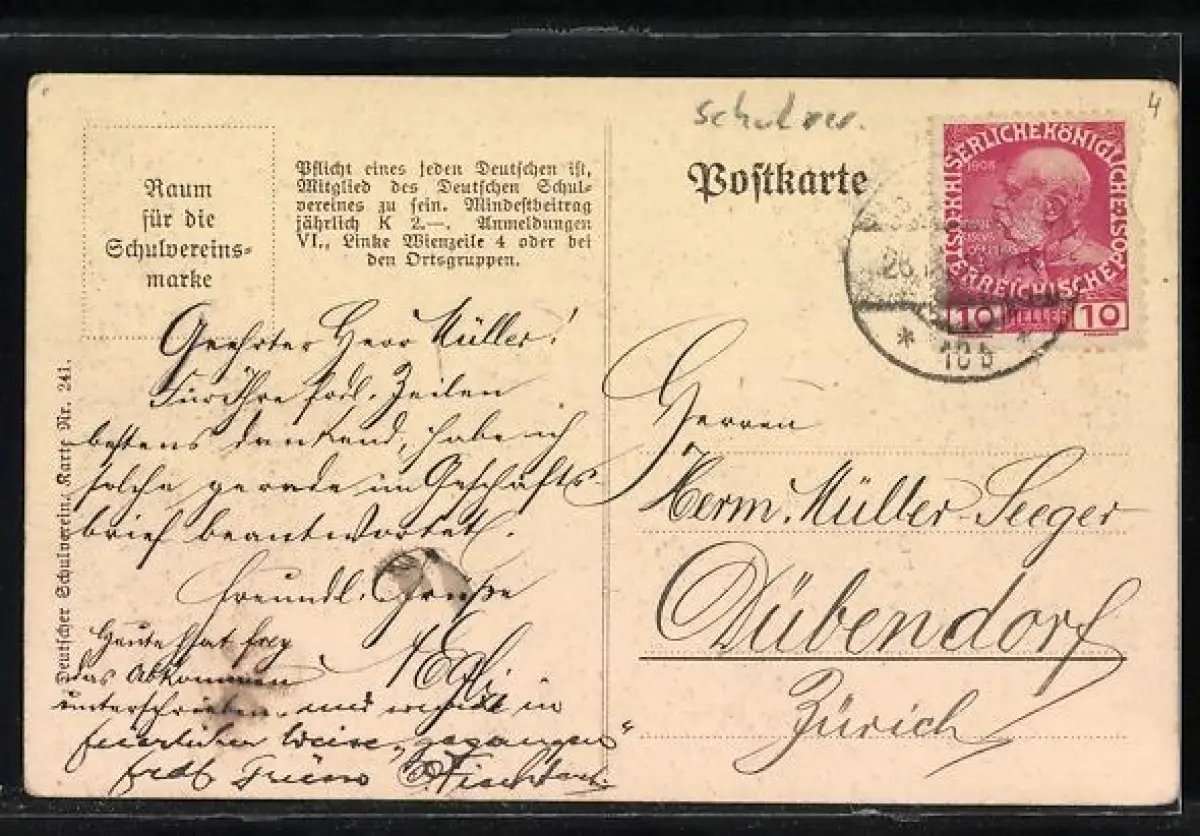 Raum
für die
Schulvereins-
marke
Pflicht eines jeden Deutschen ist,
Mitglied des Deutschen Schul-
vereines zu sein. Mindestbeitrag
jährlich K 2.—. Anmeldungen
VI., Linke Wienzeile 4 oder bei
den Ortsgruppen.
Deutscher Schulverein, Karte Nr. 241.
Geehrter Herr Müller!
Für Ihre Zeilen
bestens dankend, habe ich
solche gerade im Geschäfts-
brief beantwortet.
Freundl. Grüsse
Heute hat
das Abkommen
unterschrieben und in
feierlicher Weise, gegangen
4
Postkarte
KAISERLICHE KÖNIGLICHE ÖSTERREICHISCHE POST
1908
10 HELLER 10
26.
* 10b *
Herren
Herm. Müller-Seeger
Dübendorf
Zürich